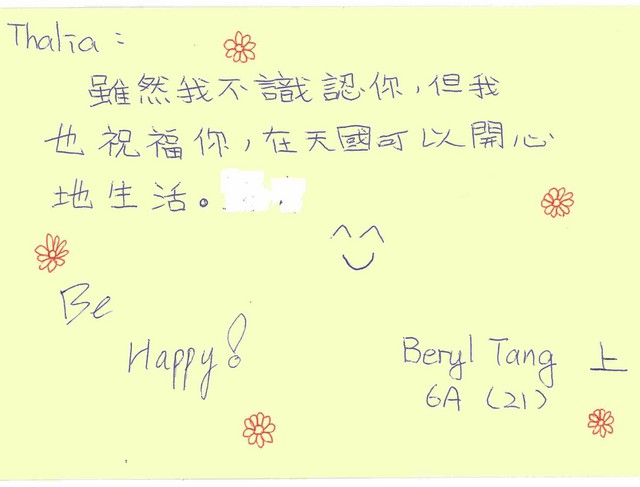 Thalia :
雖然我不識認你，但我
也祝福你，在天國可以開心
地生活。
Be
Happy!
Beryl Tang 上
6A (21)